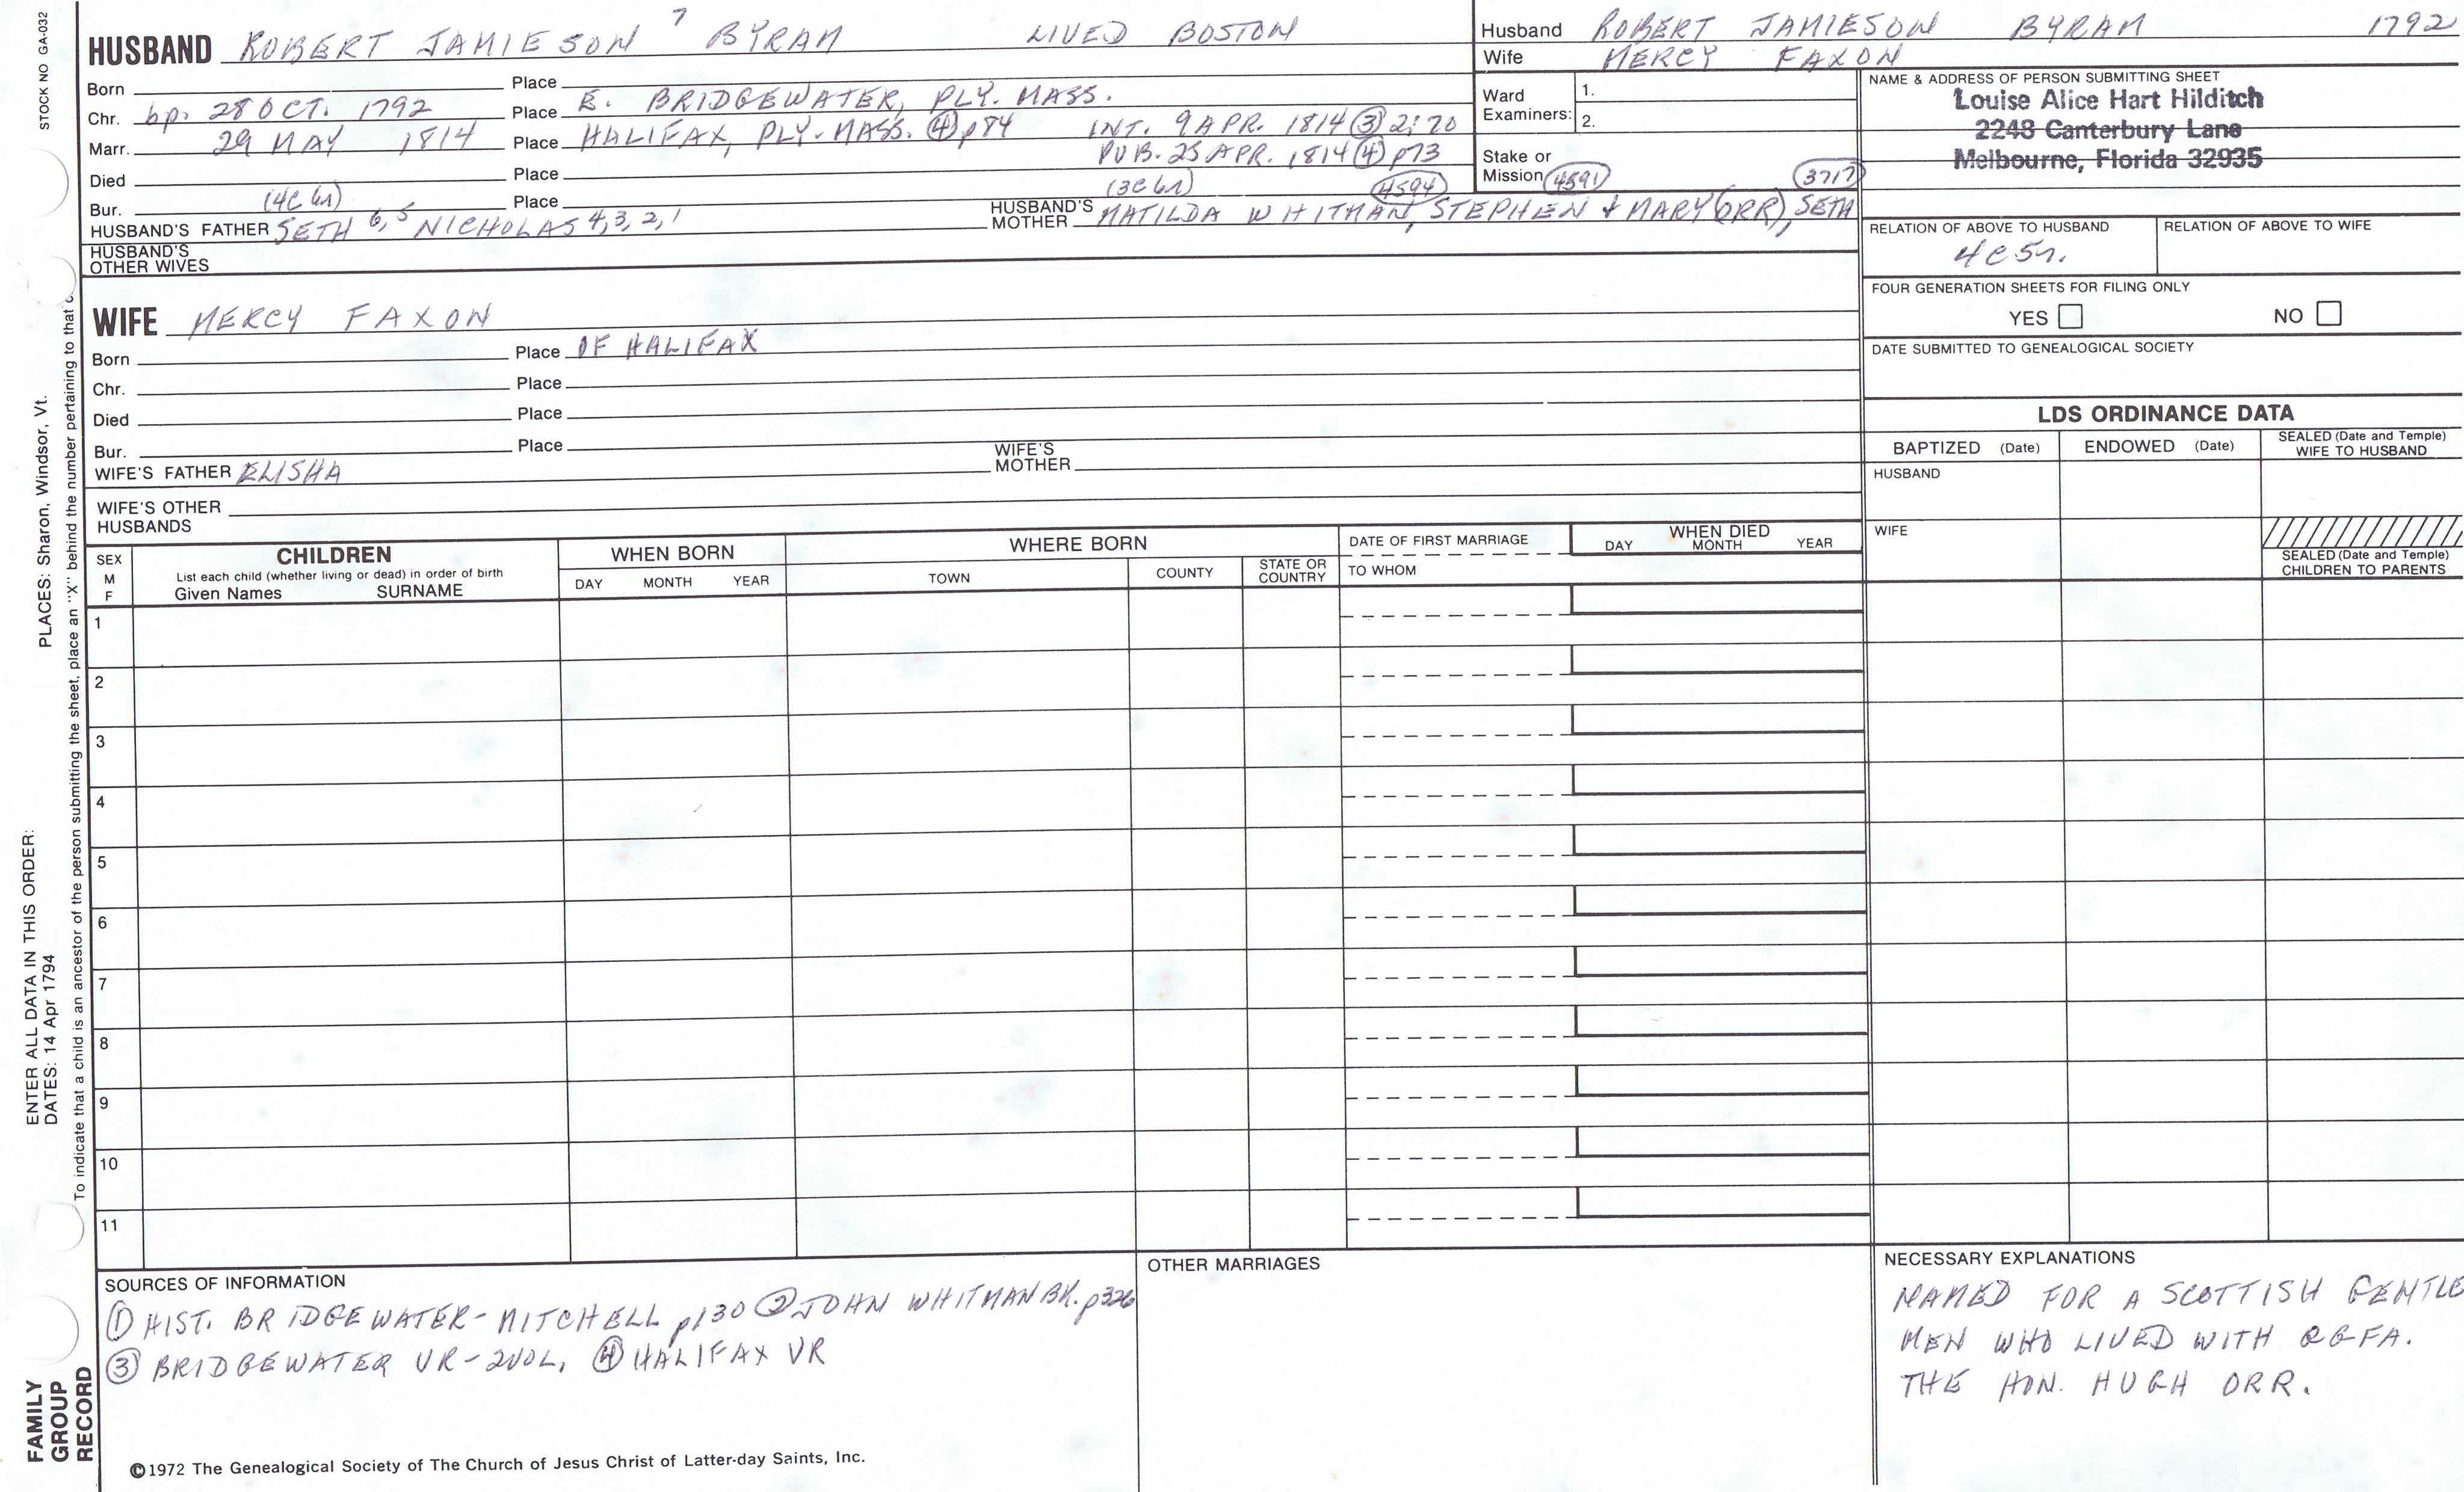 STOCK NO GA-032
HUSBAND ROBERT JAMIESON 7 BYRAM LIVED BOSTON
Born Place
Chr. bp. 28 OCT. 1792 Place E. BRIDGEWATER, PLY. MASS.
Marr. 29 MAY 1814 Place HALIFAX, PLY. MASS. ④ p84 INT. 9 APR. 1814 ③ 2:70
Died Place PUB. 25 APR. 1814 ④ p73
Bur. (4C 6r) Place (3C 6r) 4594
HUSBAND'S FATHER SETH 6,5 NICHOLAS 4,3,2,1 HUSBAND'S MOTHER MATILDA WHITMAN, STEPHEN & MARY (ORR), SETH
HUSBAND'S OTHER WIVES
Husband ROBERT JAMIESON BYRAM 1792
Wife MERCY FAXON
Ward Examiners: 1.
2.
Stake or Mission 4591 3717
NAME & ADDRESS OF PERSON SUBMITTING SHEET
Louise Alice Hart Hilditch
2248 Canterbury Lane
Melbourne, Florida 32935
RELATION OF ABOVE TO HUSBAND RELATION OF ABOVE TO WIFE
4C5r.
FOUR GENERATION SHEETS FOR FILING ONLY
YES NO
DATE SUBMITTED TO GENEALOGICAL SOCIETY
WIFE MERCY FAXON
Born Place OF HALIFAX
Chr. Place
Died Place
Bur. Place
WIFE'S FATHER ELISHA WIFE'S MOTHER
WIFE'S OTHER HUSBANDS
LDS ORDINANCE DATA
BAPTIZED (Date) ENDOWED (Date) SEALED (Date and Temple) WIFE TO HUSBAND
HUSBAND
WIFE
SEALED (Date and Temple) CHILDREN TO PARENTS
SEX M F
CHILDREN
List each child (whether living or dead) in order of birth
Given Names SURNAME
WHEN BORN
DAY MONTH YEAR
WHERE BORN
TOWN COUNTY STATE OR COUNTRY
DATE OF FIRST MARRIAGE
TO WHOM
WHEN DIED
DAY MONTH YEAR
1
2
3
4
5
6
7
8
9
10
11
SOURCES OF INFORMATION
① HIST. BRIDGEWATER-MITCHELL p130 ② JOHN WHITMAN BK. p326
③ BRIDGEWATER VR-2VOL, ④ HALIFAX VR
OTHER MARRIAGES
NECESSARY EXPLANATIONS
NAMED FOR A SCOTTISH GENTLE
MEN WHO LIVED WITH GGFA.
THE HON. HUGH ORR.
©1972 The Genealogical Society of The Church of Jesus Christ of Latter-day Saints, Inc.
PLACES: Sharon, Windsor, Vt.
To indicate that a child is an ancestor of the person submitting the sheet, place an "X" behind the number pertaining to that
ENTER ALL DATA IN THIS ORDER:
DATES: 14 Apr 1794
FAMILY
GROUP
RECORD